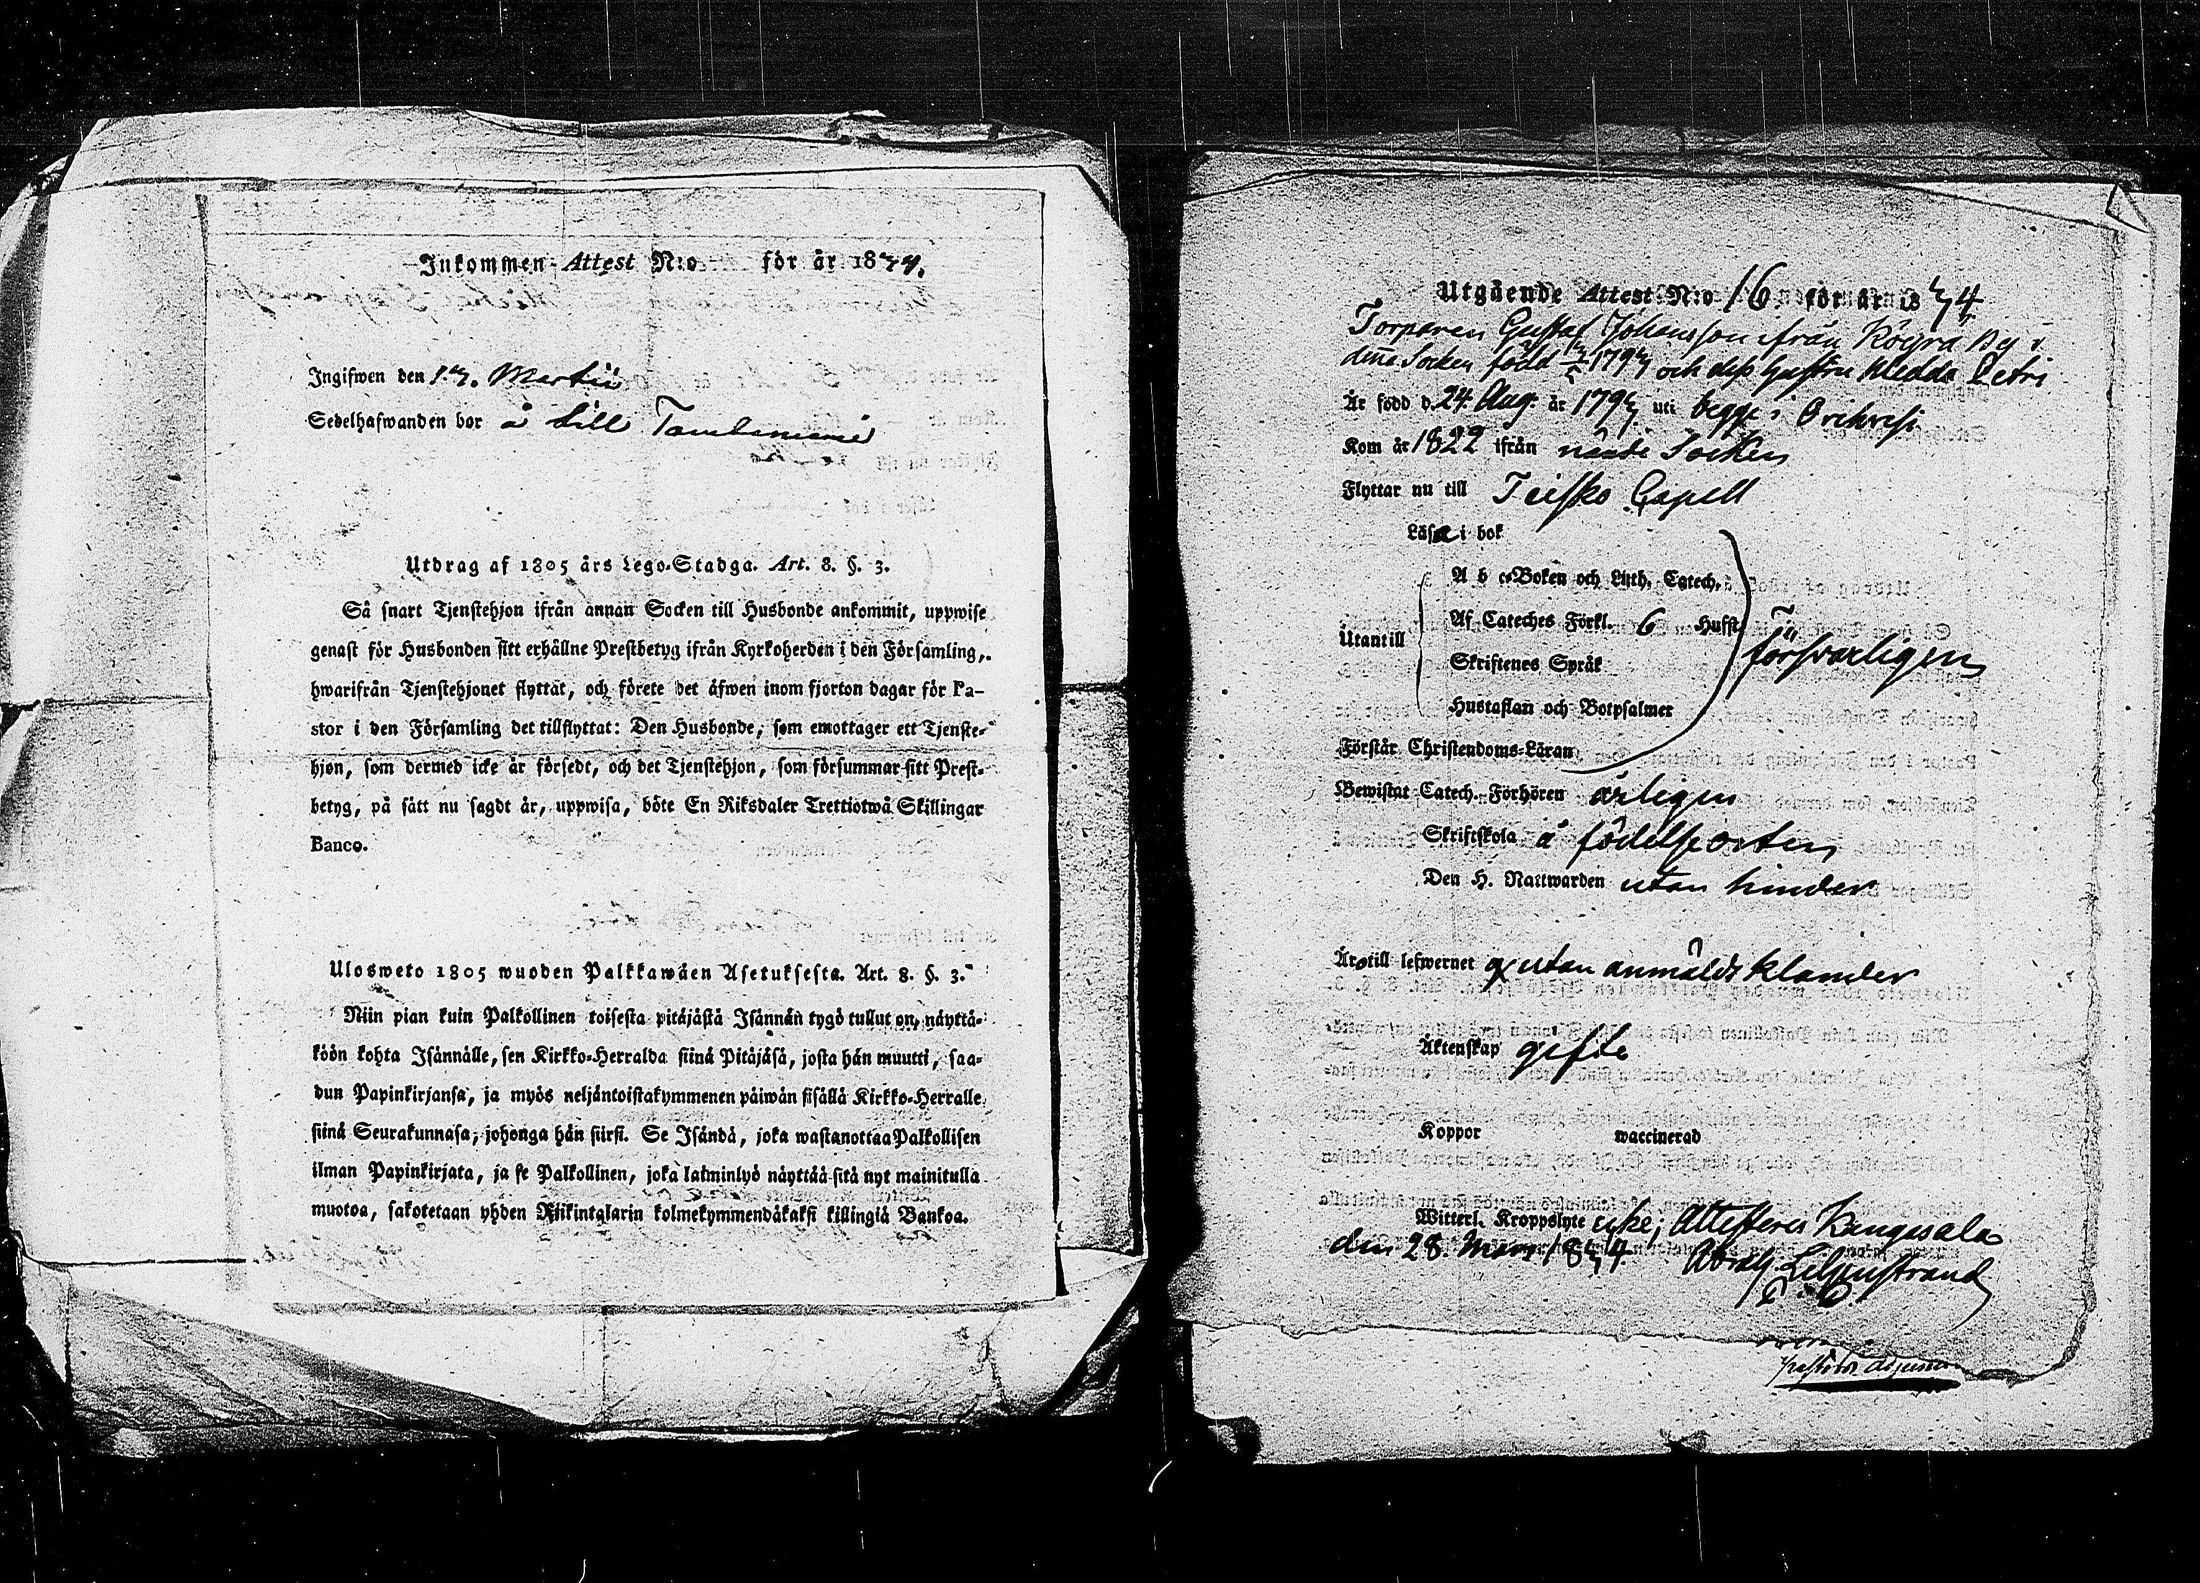 Inkommen Attest N:o för år 1844.
Ingifwen den 17. Martii
Sedelhafwanden bor å till
Utdrag af 1805 års Lego-Stadga. Art. 8. §. 3.
Så snart Tjenstehjon ifrån annan Socken till Husbonde ankommit, uppwise
genast för Husbonden sitt erhållne Prestbetyg ifrån Kyrkoherden i den Församling,
hwarifrån Tjenstehjonet flyttat, och förete det äfwen inom fjorton dagar för Pa-
stor i den Församling det tillflyttat: Den Husbonde, som emottager ett Tjenste-
hjon, som dermed icke är försedt, och det Tjenstehjon, som försummar sitt Prest-
betyg, på sätt nu sagdt är, uppwisa, böte En Riksdaler Trettiotwå Skillingar
Banco.
Ulosweto 1805 wuoden Palkkawäen Asetuksesta. Art. 8. §. 3.
Niin pian kuin Palkollinen toisesta pitäjästä Isännän tygö tullut on, näyttä-
köön kohta Isännälle, sen Kirkko-Herralda siinä Pitäjäsä, josta hän muutti, saa-
dun Papinkirjansa, ja myös neljäntoistakymmenen päiwän sisällä Kirkko-Herralle
siinä Seurakunnasa, johonga hän siirsi. Se Isändä, joka wastanottaa Palkollisen
ilman Papinkirjata, ja se Palkollinen, joka laiminlyö näyttää sitä nyt mainitulla
muotoa, sakotetaan yhden Riikintalarin kolmekymmendäkaksi killingiä Bankoa.
Utgående Attest N:o 16 för år 1844
Torparen Gustaf Johansson ifrån By i
denna Socken född och dess hustru Hedda
Är född d. 24. Aug. år 1797 uti begge i Orihvesi
Kom år 1822 ifrån nämde Socken
Flyttar nu till Teisko Capell
Läsa i bok
A b c-Boken och Luth. Catech.
Utantill Af Cateches Förkl. 6 Hufst. försvarligen
Skriftenes Språk
Hustaflan och Botpsalmer
Förstår Christendoms-Läran
Bewistat Catech. Förhören årligen
Skriftskola å födelseorten
Den H. Nattwarden utan hinder
Äro till lefwernet utan anmäldt klander
Äktenskap gifte
Koppor waccinerad
Witterl. Kroppslyte icke; Attesterar Kangasala
den 28. Mars 1844. Abrah. Lilljenstrand
Pastors Adjunct